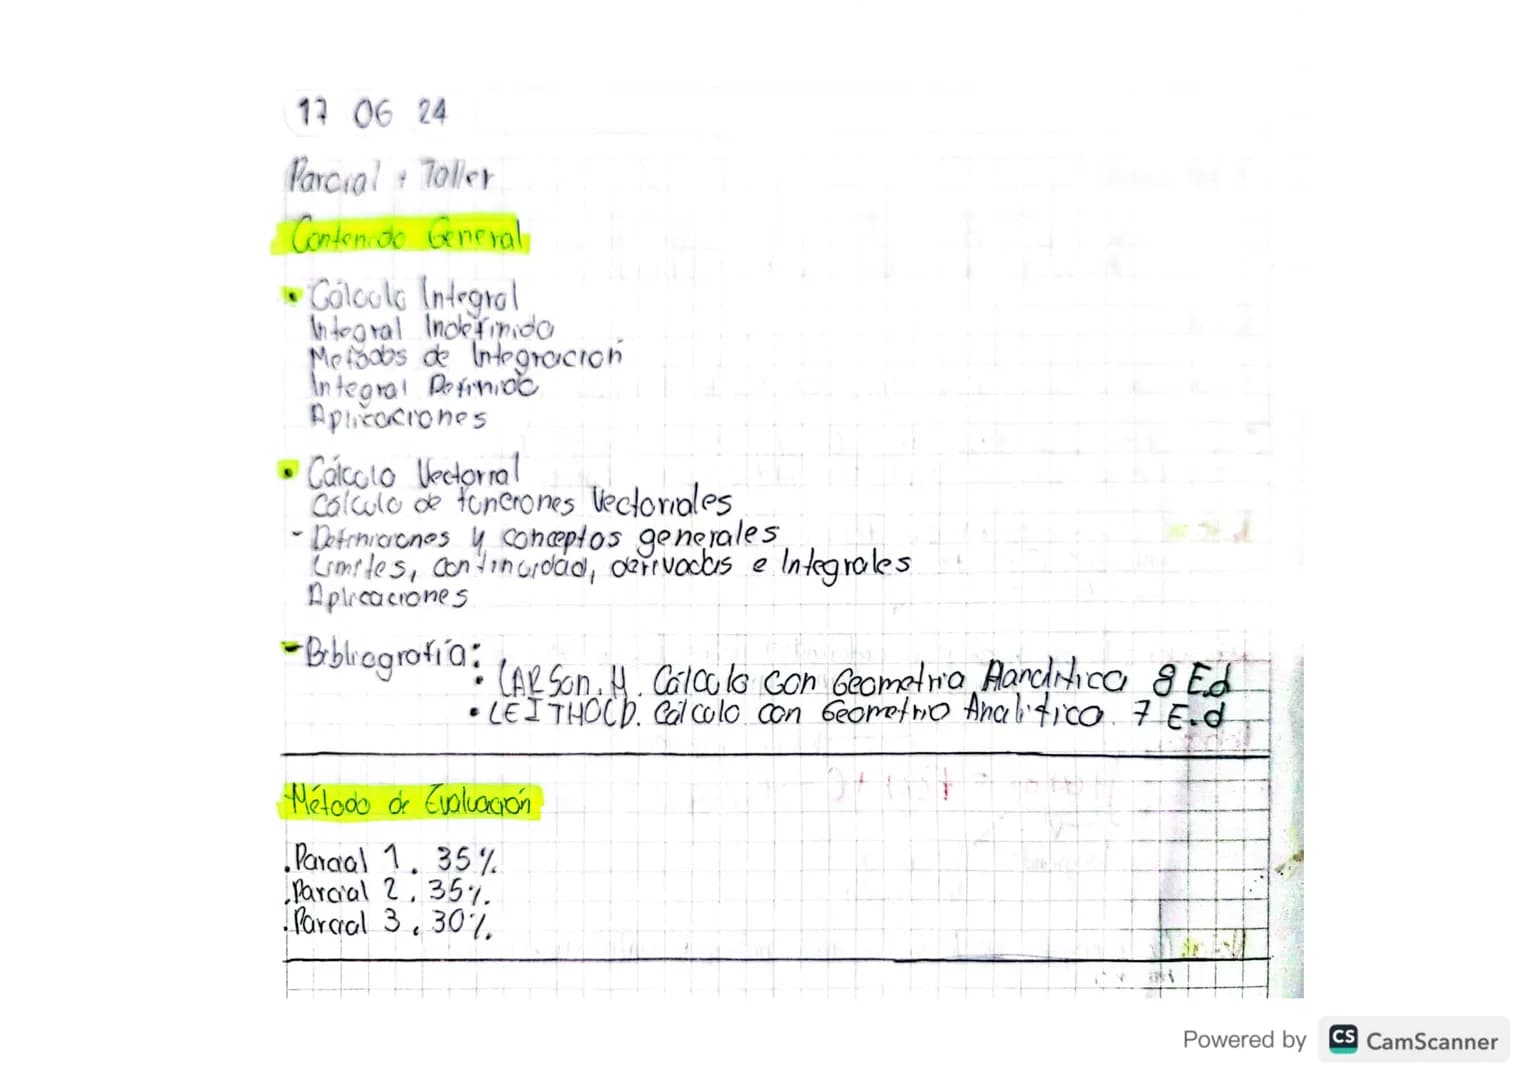 17 06 24
Parcial + Taller
Contenido General
• Cálculo Integral
Integral Indefinida
Metodos de Integración
Integral Definida
Aplicaciones
• Cálculo Vectorial
Cálculo de funciones Vectoriales
- Definiciones y conceptos generales
Limites, continuidad, derivadas e Integrales
Aplicaciones
- Bibliografía:
• LARSon. H. Cálculo con Geometria Analitica 8 Ed
• LEITHOLD. Cálculo con Geometria Analitica. 7 E.d
Método de Evaluación
. Parcial 1. 35%.
. Parcial 2. 35%.
. Parcial 3. 30%.
Powered by CS CamScanner